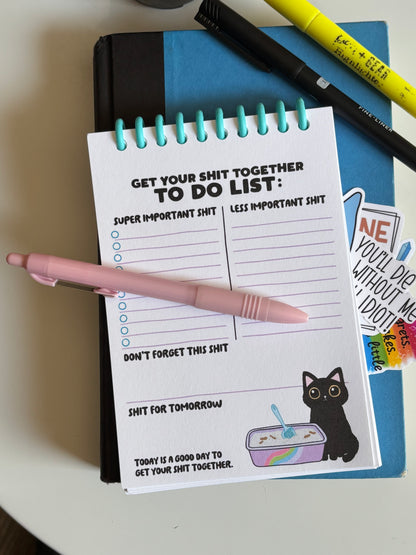 GET YOUR SHIT TOGETHER
TO DO LIST:
SUPER IMPORTANT SHIT
LESS IMPORTANT SHIT
DON'T FORGET THIS SHIT
SHIT FOR TOMORROW
TODAY IS A GOOD DAY TO
GET YOUR SHIT TOGETHER.
YOU'LL DIE
WITHOUT ME
IDIOT.
little